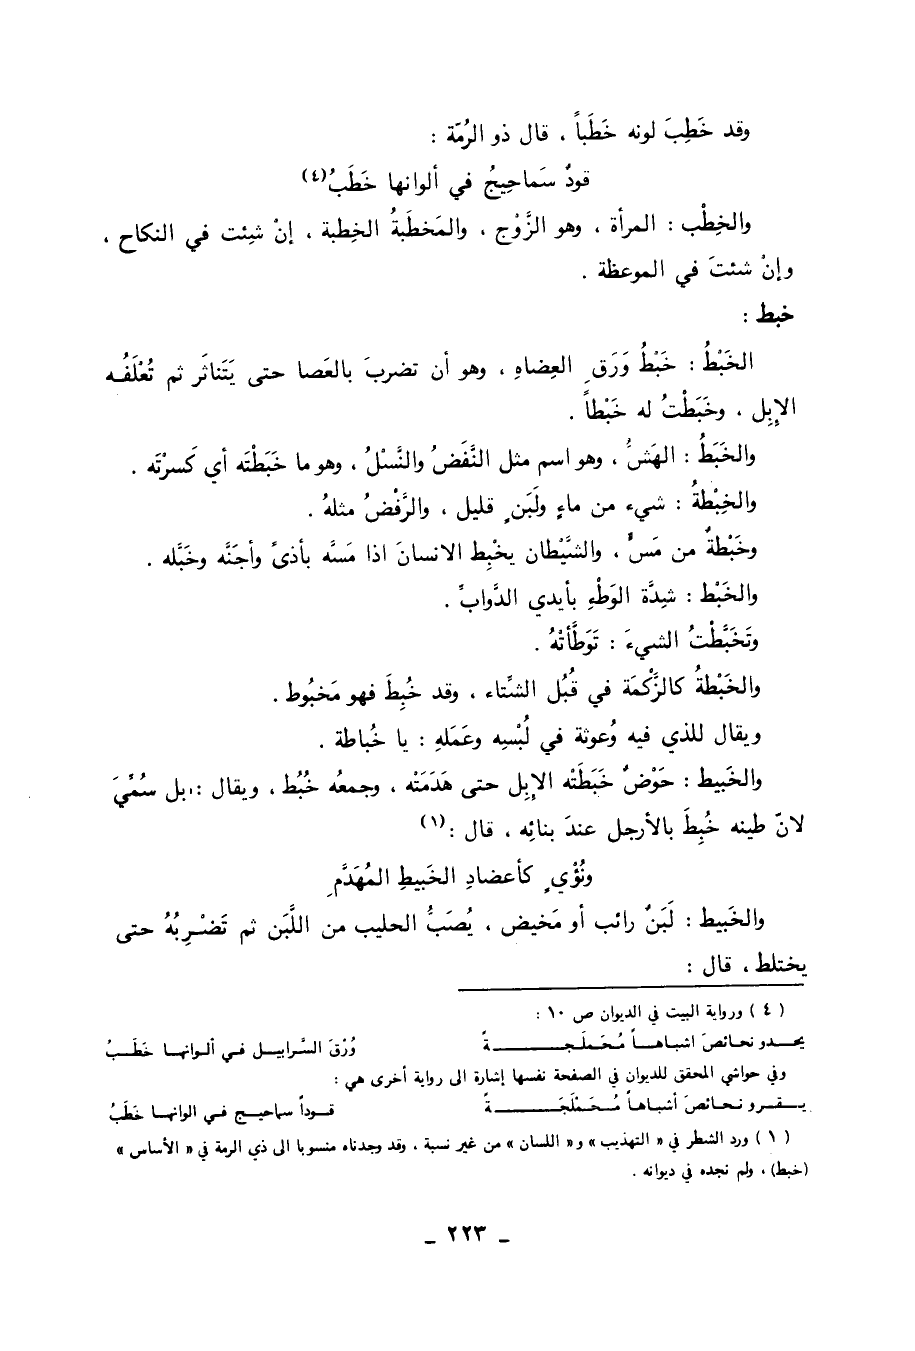 وقد خَطِبَ لونه خَطَباً ، قال ذو الرُمّة :
قودٌ سَماحِيجُ في ألوانها خَطَبُ(٤)
والخِطْب : المرأة ، وهو الزَّوْج ، والمَخطَبةُ الخِطبة ، إنْ شِئت في النكاح ،
وإنْ شئتَ في الموعظة .
خبط :
الخَبْطُ : خَبْطُ وَرَقِ العِضاهِ ، وهو أن تضربَ بالعَصا حتى يَتَناثَر ثم تُعْلَفُه
الإِبِل ، وخَبَطْتُ له خَبْطاً .
والخَبَطُ : الهَشُّ ، وهو اسم مثل النَّفَضُ والنَّسْلُ ، وهو ما خَبَطْتَه أي كَسرْتَه .
والخِبْطةُ : شيء من ماءٍ ولَبَنٍ قليل ، والرَّفْضُ مثلهُ .
وخَبْطةٌ من مَسٍّ ، والشَّيْطان يخْبِط الانسانَ اذا مَسَّه بأذىً وأجَنَّه وخَبَّله .
والخَبْط : شِدَّة الوَطْءِ بأيدي الدَّوابِّ .
وتَخَبَّطْتُ الشيءَ : تَوَطَّأتْهُ .
والخَبْطةُ كالزَّكْمَة في قُبُل الشِّتاء ، وقد خُبِطَ فهو مَخبُوط .
ويقال للذي فيه وُعوثة في لُبْسِه وعَمَلهِ : يا خُباطة .
والخَبيط : حَوْضٌ خَبَطَتْه الإِبِل حتى هَدَمَتْه ، وجمعُه خُبُط ، ويقال : بل سُمِّيَ
لانّ طينه خُبِطَ بالأرجل عندَ بنائِه ، قال :(١)
ونُؤْيٍ كأعضادِ الخَبيطِ المُهَدَّمِ
والخَبيط : لَبَنٌ رائب أو مَخيض ، يُصَبُّ الحليب من اللَّبَن ثم تَضْرِبُهُ حتى
يختلط ، قال :
( ٤ ) ورواية البيت في الديوان ص ١٠ :
يحدو نحائصَ اشباهاً مُحَملَجةً وُرْقَ السَّرابيل في ألوانها خَطَبُ
وفي حواشي المحقق للديوان في الصفحة نفسها إشارة الى رواية أخرى هي :
يقرو نحائصَ أشباهاً مُحَمْلَجَةً قوداً سماحيج في الوانها خَطَبُ
( ١ ) ورد الشطر في « التهذيب » و « اللسان » من غير نسبة ، وقد وجدناه منسوبا الى ذي الرمة في « الأساس »
(خبط) ، ولم نجده في ديوانه .
– ٢٢٣ –